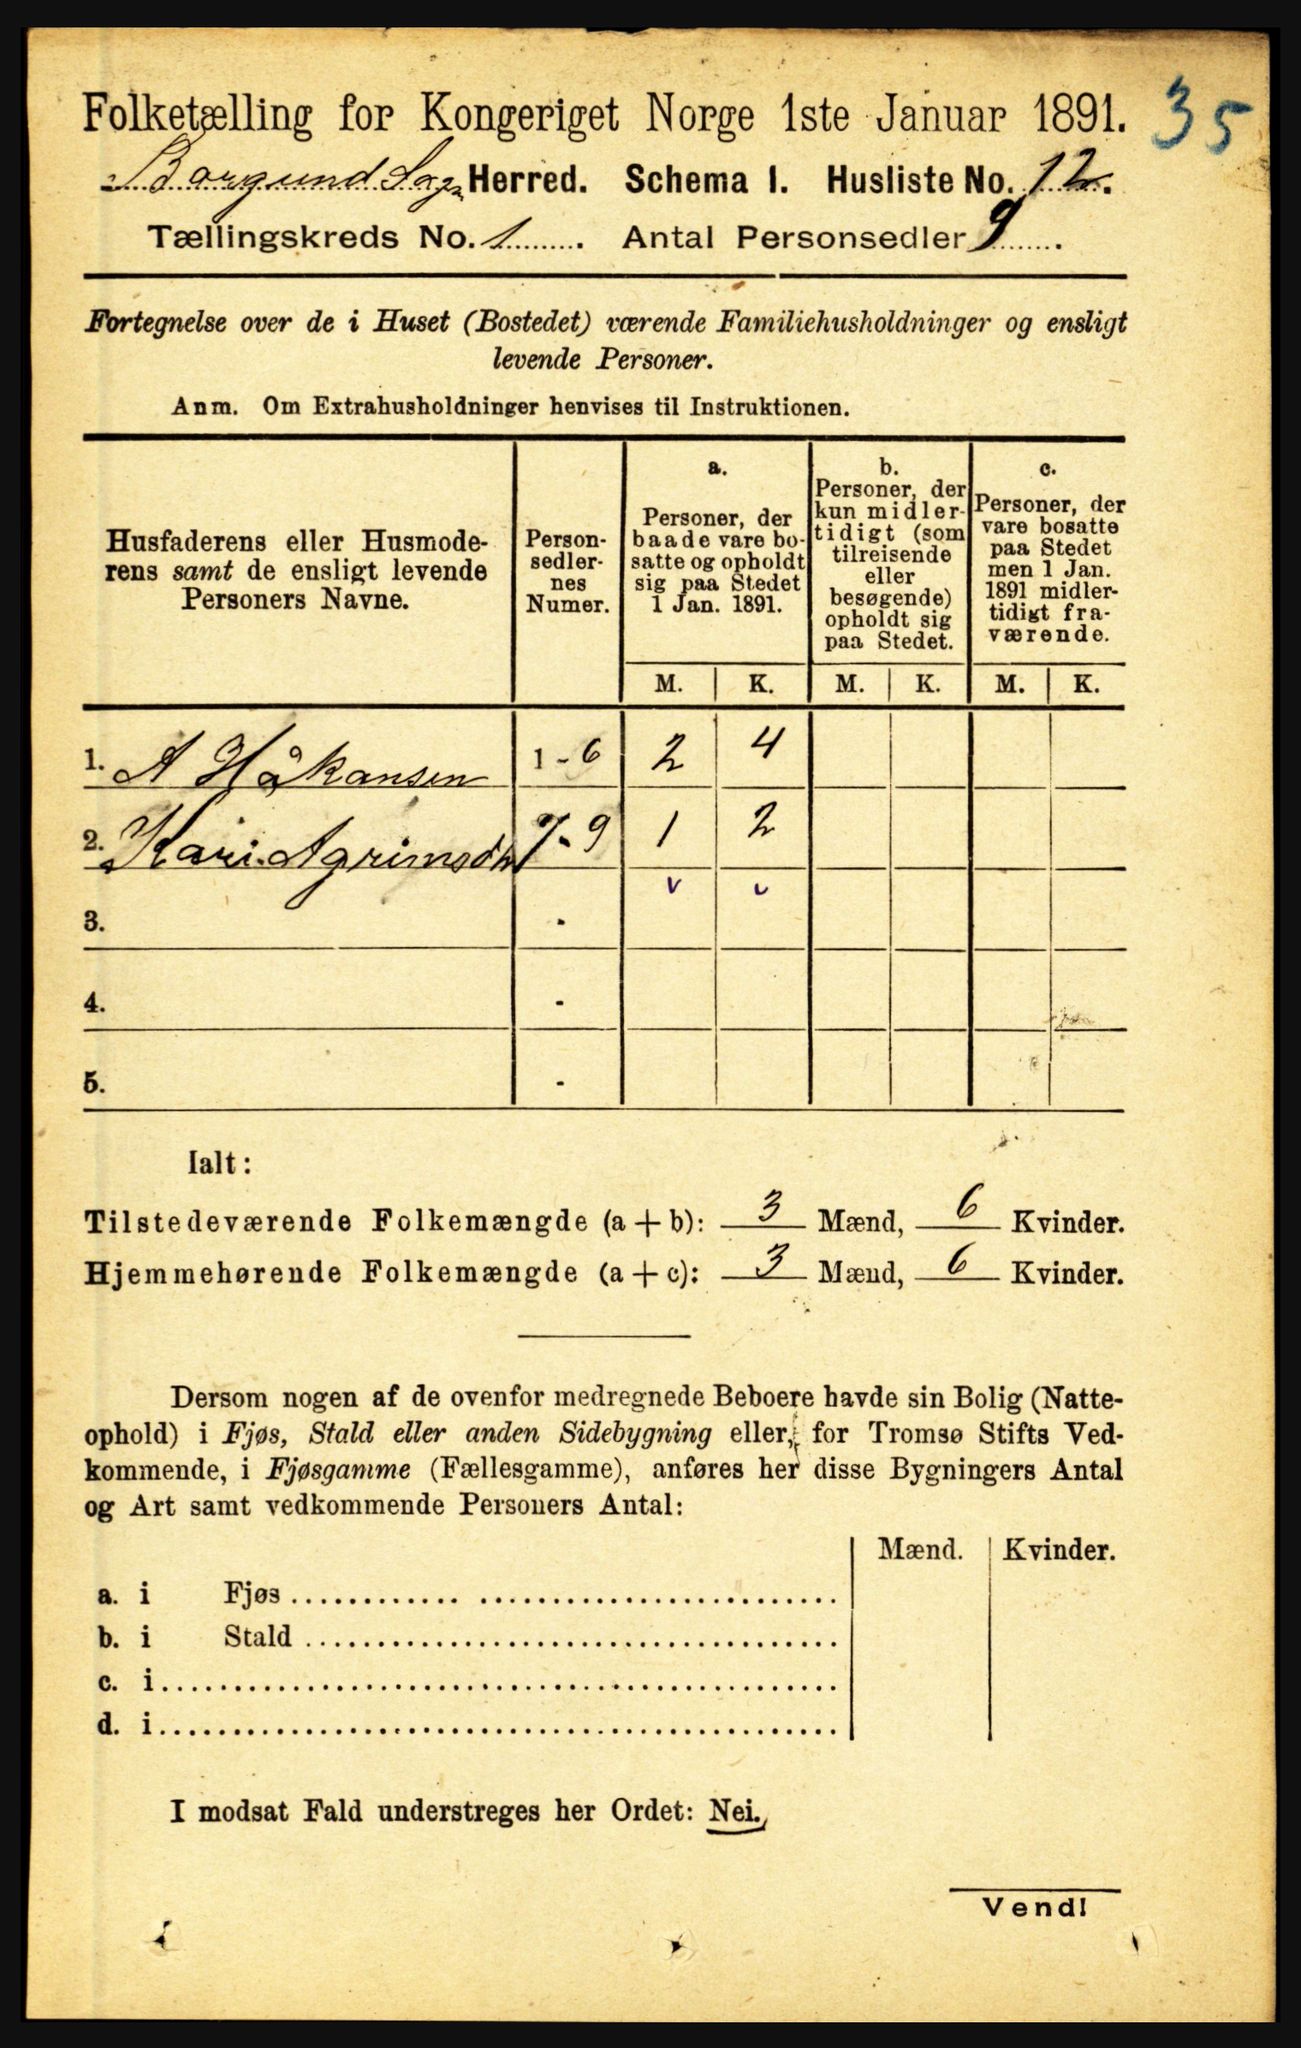 Folketælling for Kongeriget Norge 1ste Januar 1891. 35
Borgund Sogn Herred. Schema 1. Husliste No. 12.
Tællingskreds No. 1. Antal Personsedler 9.
Fortegnelse over de i Huset (Bostedet) værende Familiehusholdninger og ensligt
levende Personer.
Anm. Om Extrahusholdninger henvises til Instruktionen.
Husfaderens eller Husmode-
rens samt de ensligt levende
Personers Navne.
Person-
sedler-
nes
Numer.
a.
Personer, der
baade vare bo-
satte og opholdt
sig paa Stedet
1 Jan. 1891.
b.
Personer, der
kun midler-
tidigt (som
tilreisende
eller
besøgende)
opholdt sig
paa Stedet.
c.
Personer, der
vare bosatte
paa Stedet
men 1 Jan.
1891 midler-
tidigt fra-
værende.
M. K. M. K. M. K.
1. A Håkansen 1-6 2 4
2. Kari Agrimsdtr 7-9 1 2
3. -
4. -
5. -
Ialt:
Tilstedeværende Folkemængde (a + b): 3 Mænd, 6 Kvinder.
Hjemmehørende Folkemængde (a + c): 3 Mænd, 6 Kvinder.
Dersom nogen af de ovenfor medregnede Beboere havde sin Bolig (Natte-
ophold) i Fjøs, Stald eller anden Sidebygning eller, for Tromsø Stifts Ved-
kommende, i Fjøsgamme (Fællesgamme), anføres her disse Bygningers Antal
og Art samt vedkommende Personers Antal:
Mænd. Kvinder.
a. i Fjøs
b. i Stald
c. i
d. i
I modsat Fald understreges her Ordet: Nei.
Vend!